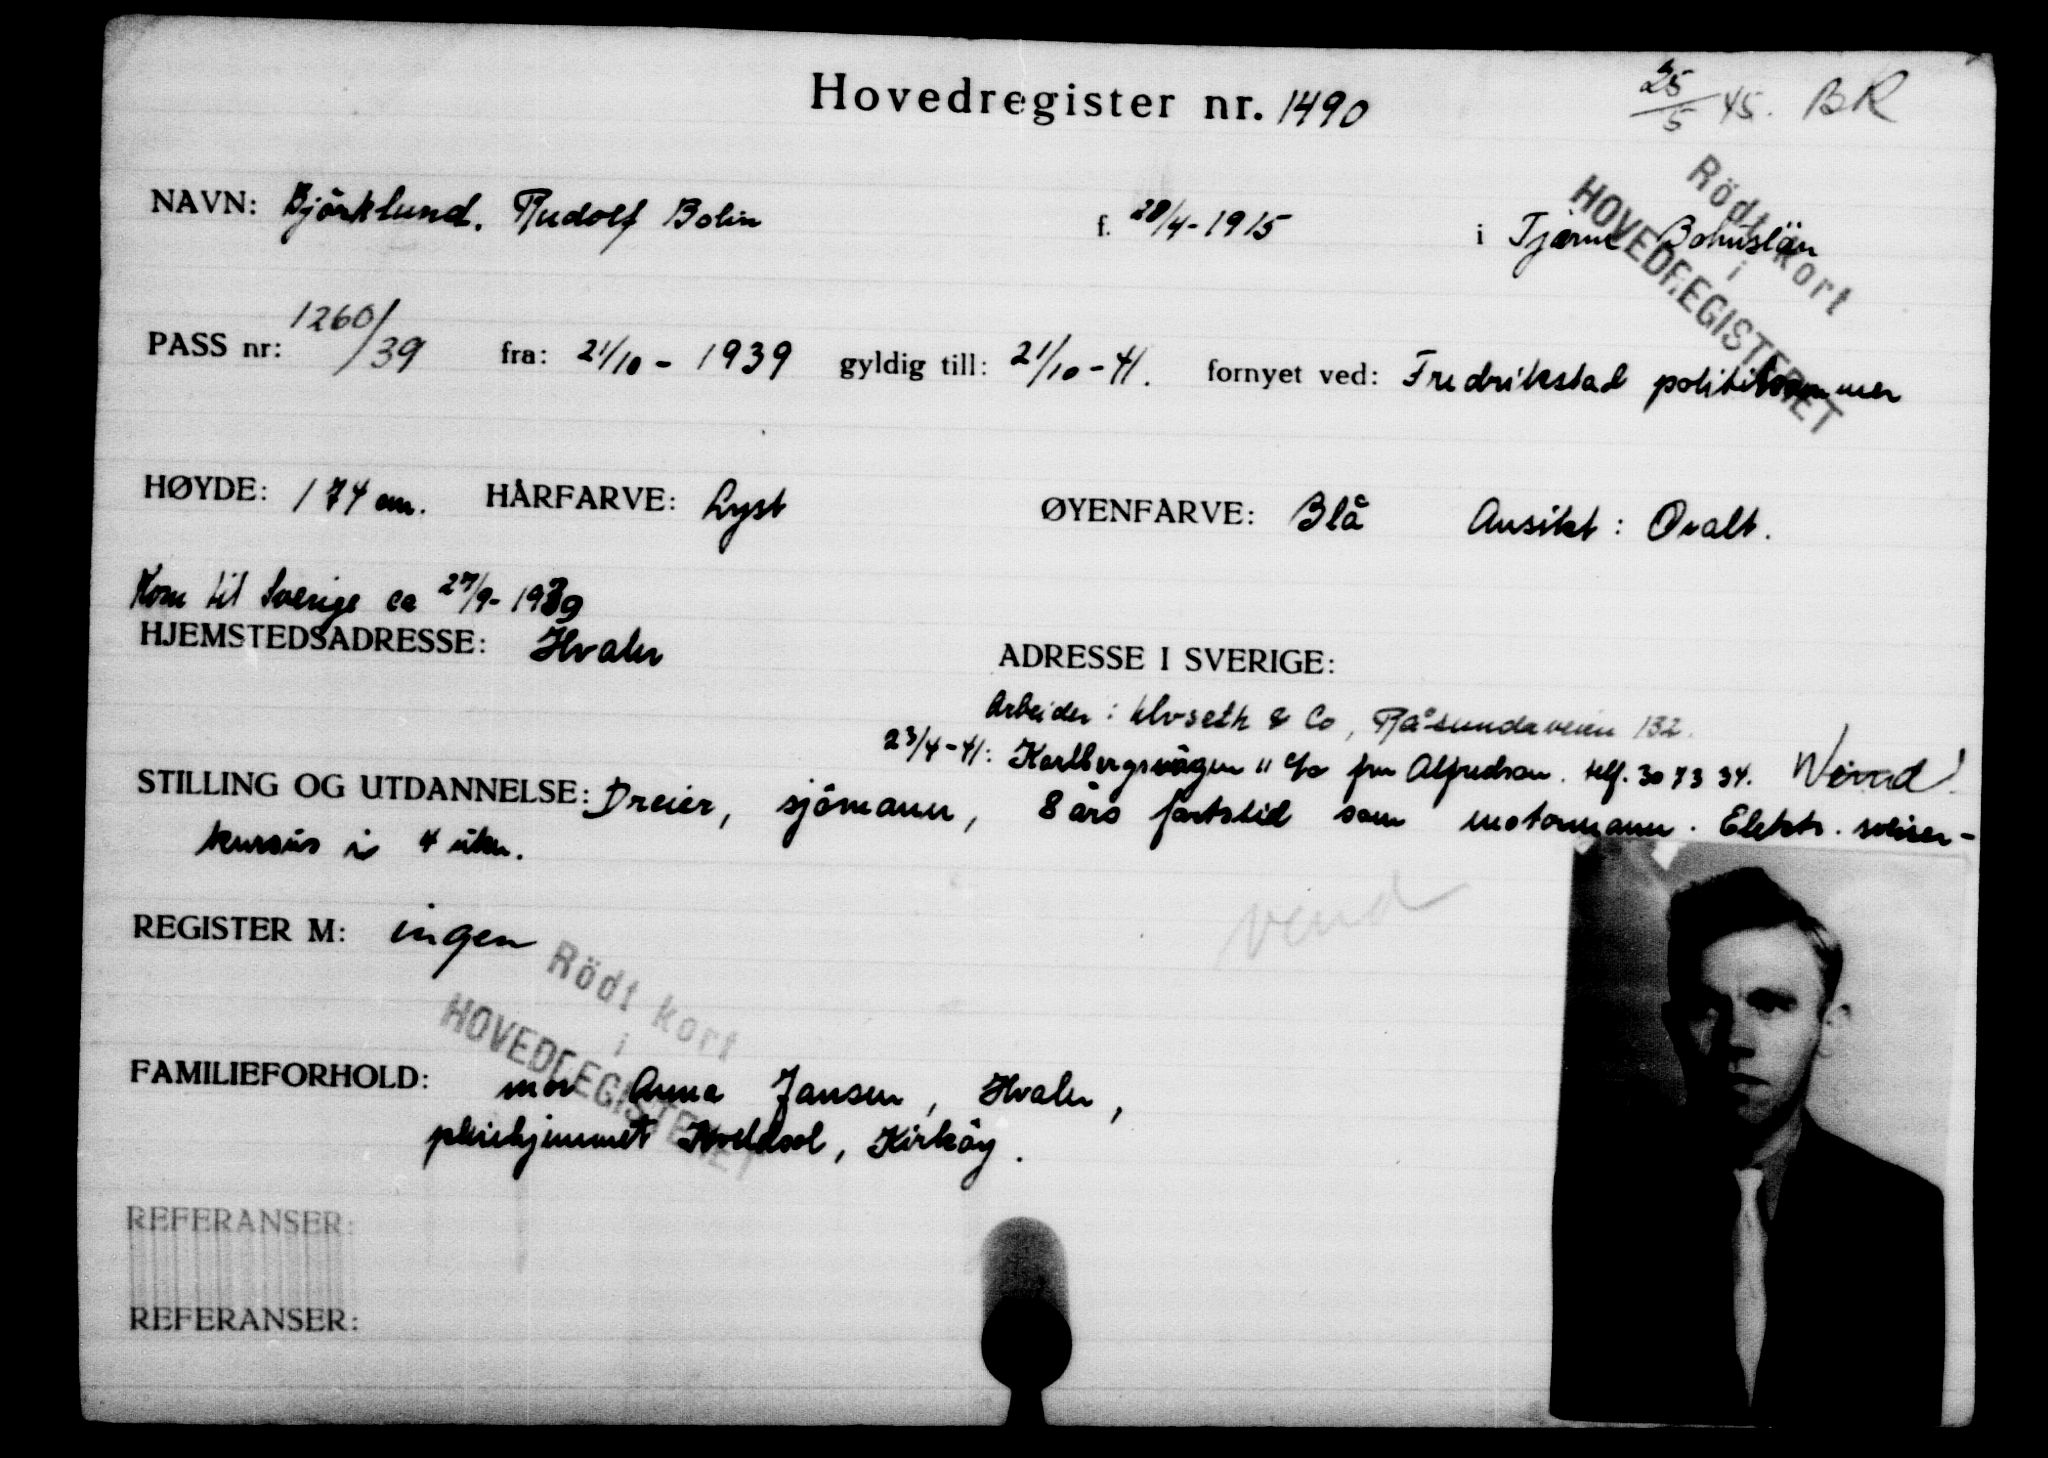 Hovedregister nr. 1490
25/5 45. BR
Rödt kort
i
HOVEDREGISTERET
NAVN: Björklund, Rudolf Bolin f. 28/4-1915 i Tjärnö Bohuslän
PASS nr: 1260/39 fra: 21/10 - 1939 gyldig till: 21/10 - 41. fornyet ved: Fredrikstad politikammer
HØYDE: 174 cm. HÅRFARVE: Lyst ØYENFARVE: Blå Ansikt: Ovalt.
Kom til Sverige ca 27/9- 1939
HJEMSTEDSADRESSE: Hvaler ADRESSE I SVERIGE:
Arbeider: & Co, Råsundaveien 132.
23/4-41: Karlbergsvägen 11 c/o fru Alfredson. telf. 30 73 34.
STILLING OG UTDANNELSE: Dreier, sjömann, 8 års fartstid som motormann. Elektr. sveiser-
kursus i 4 uker.
vend
REGISTER M: ingen
Rödt kort
i
HOVEDREGISTERET
FAMILIEFORHOLD: mor Anna Jansen, Hvaler,
pleiehjemmet Kveldsol, Kirköy.
REFERANSER:
REFERANSER: